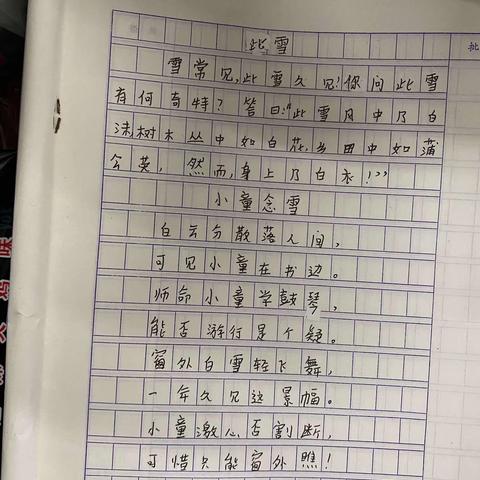 此雪
雪常见,此雪久见!你问此雪
有何奇特?答曰:“此雪风中乃白
沫,树木丛中如白花,当田中如蒲
公英,然而,身上乃白衣!”
小童念雪
白云分散落人间,
可见小童在书边。
师命小童学鼓琴,
能否游行是个疑。
窗外白雪轻飞舞,
一年久见这景幅。
小童激心否割断,
可惜只能窗外瞧!
批